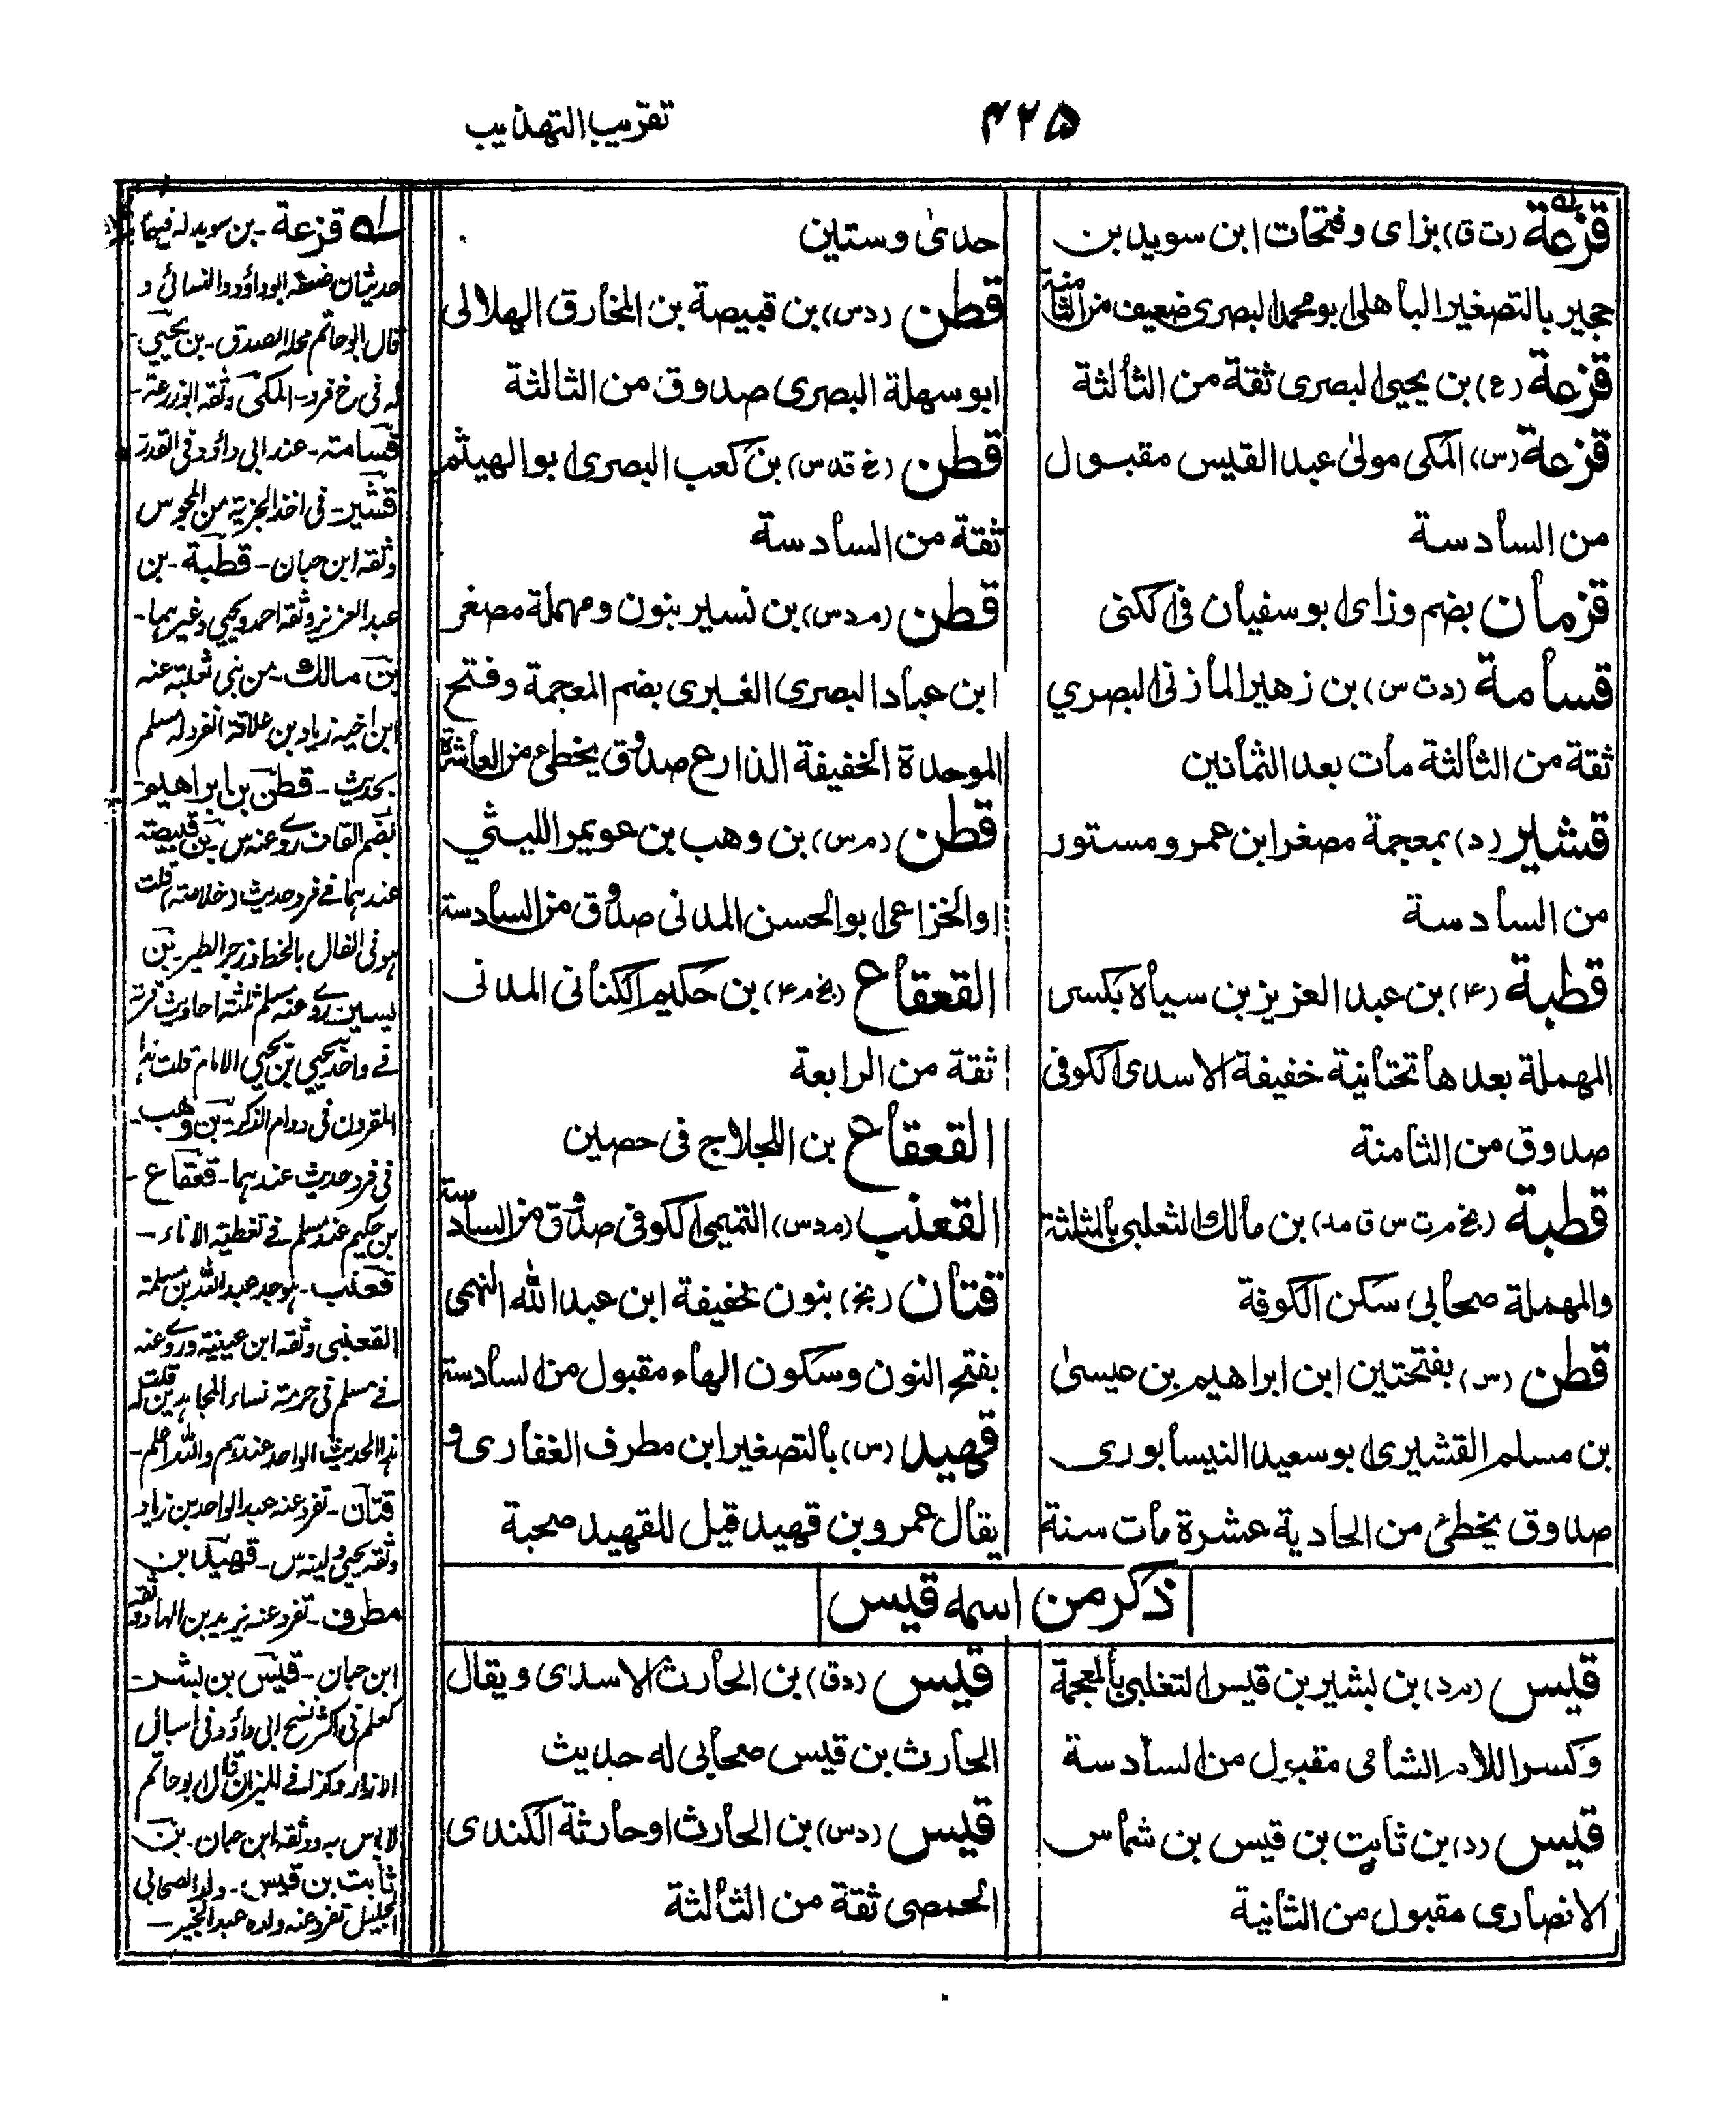 ۴۲۵
تقریب التهذیب
قزعة (ت ق) بزای وفتحات ابن سوید بن
حجیر بالتصغیر الباهلی ابو محمد البصری ضعیف من الثامنة
قزعة (ع) بن یحیی البصری ثقة من الثالثة
قزعة (س) المکی مولی عبد القیس مقبول
من السادسة
قزمان بضم وزای ابو سفیان فی الکنی
قسامة (د ت س) بن زهیر المازنی البصری
ثقة من الثالثة مات بعد الثمانین
قشیر (د) بمعجمة مصغر ابن عمرو مستور
من السادسة
قطبة (م۴) بن عبد العزیز بن سیاه بکسر
المهملة بعدها تحتانیة خفیفة الاسدی الکوفی
صدوق من الثامنة
قطبة (بخ م ت س ق) بن مالک الثعلبی بالمثلثة
والمهملة صحابی سکن الکوفة
قطن (س) بفتحتین ابن ابراهیم بن عیسی
بن مسلم القشیری ابو سعید النیسابوری
صدوق یخطئ من الحادیة عشرة مات سنة
حدی وستین
قطن (د س) بن قبیصة بن المخارق الهلالی
ابو سهلة البصری صدوق من الثالثة
قطن (خ قد س) بن کعب البصری ابو الهیثم
ثقة من السادسة
قطن (م د س) بن نسیر بنون ومهملة مصغر
ابن عباد البصری الغبری بضم المعجمة وفتح
الموحدة الخفیفة الذارع صدوق یخطئ من العاشرة
قطن (م س) بن وهب بن عویمر اللیثی
او الخزاعی ابو الحسن المدنی صدوق من السادسة
القعقاع (بخ م ۴) بن حکیم الکنانی المدنی
ثقة من الرابعة
القعقاع بن اللجلاج فی حصین
القعنب (م د س) التمیمی الکوفی صدوق من السادسة
قنان (بخ) بنون خفیفة ابن عبد الله النهمی
بفتح النون وسکون الهاء مقبول من السادسة
قهید (س) بالتصغیر ابن مطرف الغفاری و
یقال عمرو بن قهید قیل للقهید صحبة
ذکر من اسمه قیس
قیس (د) بن بشیر بن قیس التغلبی بالمعجمة
وکسر اللام الشامی مقبول من السادسة
قیس (د) بن ثابت بن قیس بن شماس
الانصاری مقبول من الثانیة
قیس (د ق) بن الحارث الاسدی ویقال
الحارث بن قیس صحابی له حدیث
قیس (د س) بن الحارث او حارثة الکندی
الحمصی ثقة من الثالثة
له قزعة - بن سوید له فیهما
حدیثان ضعفه ابو داؤد والنسائی و
قال ابو حاتم محله الصدق - بن یحیی -
له فی خ فرد - المکی وثقه ابو زرعة -
قسامة - عند ابی داؤد فی القدر
قشیر - فی اخذ الجزیة من المجوس
وثقه ابن حبان - قطبة - بن
عبد العزیز وثقه احمد ویحیی وغیرهما -
بن مالک - من بنی ثعلبة عنه
ابن اخیه زیاد بن علاقة انفرد له مسلم
بحدیث - قطن بن ابراهیم -
بضم القاف روی عنه س - بن قبیصة
عندهما فی فرد حدیث (خلاصة) قلت
هو فی الفال بالخط وزجر الطیر - بن
نسیر روی عنه مسلم ثلثة احادیث قرنه
فی واحد بیحیی بن یحیی الامام قلت هذا
المقرون فی دوام الذکر - بن وهب -
فی فرد حدیث عندهما - قعقاع -
بن حکیم عند مسلم فی تغطیة الاناء -
قعنب - هو جد عبد الله بن مسلمة
القعنبی وثقه ابن عیینة وروی عنه
فی مسلم فی حرمة نساء المجاهدین قلت له
هذا الحدیث الواحد عندهم والله اعلم -
قنان - تفرد عنه عبد الواحد بن زیاد
وثقه یحیی ولینه س - قهید بن
مطرف - تفرد عنه یزید بن الهاد وثقه
ابن حبان - قیس بن بشر -
کعلم فی اکثر نسخ ابی داؤد فی اسبال
الازار وکذا فی المیزان قال ابو حاتم
لا باس به ووثقه ابن حبان - بن
ثابت بن قیس - ولد الصحابی
الجلیل تفرد عنه ولده عبد الخبیر -